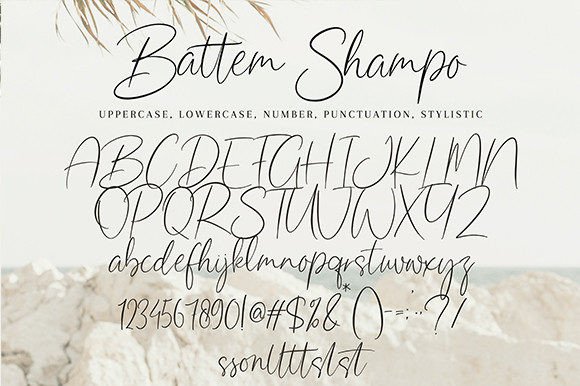 Battem Shampo
UPPERCASE, LOWERCASE, NUMBER, PUNCTUATION, STYLISTIC
ABCDEFGHIJKLMN
OPQRSTUVWXYZ
abcdefhijklmnopqrstuvwxyz
1234567890!@#$%&*()-=:;..-?/
ssonlltttslst